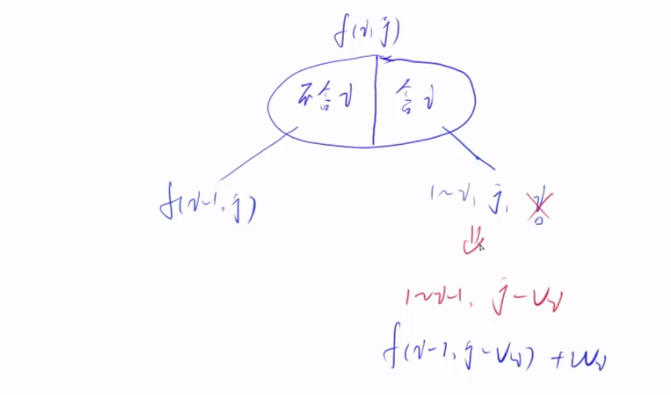 f(i, j)
不含i 含i
f(i-1, j)
1~i, j, 含i
1~i-1, j-Vi
f(i-1, j-Vi) + Wi